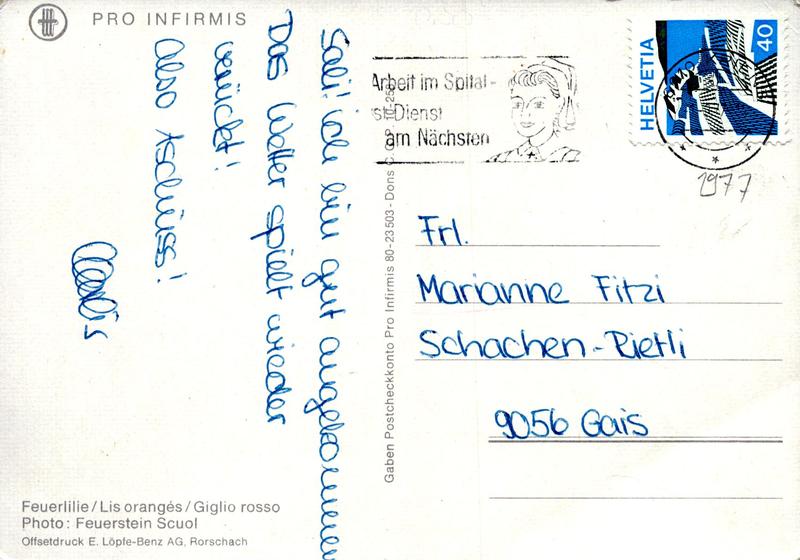 PRO INFIRMIS
Sali! ich bin gut angekommen
Das Wetter spielt wieder
verückt!
Also tschüss!
Feuerlilie/Lis orangés/Giglio rosso
Photo: Feuerstein Scuol
Offsetdruck E. Löpfe-Benz AG, Rorschach
Gaben Postcheckkonto Pro Infirmis 80-23503-Dons
Arbeit im Spital-
st Dienst
am Nächsten
HELVETIA
40
1977
Frl.
Marianne Fitzi
Schachen-Rietli
9056 Gais